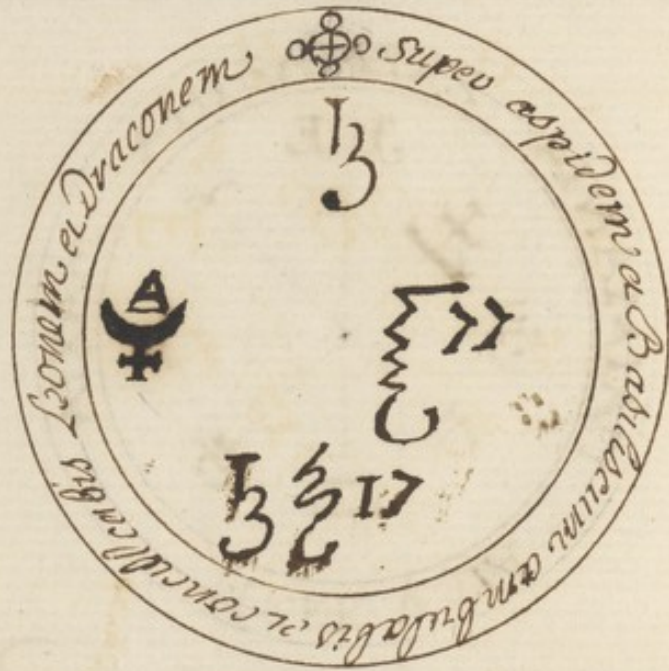 super aspidem et Basiliscum ambulabis et conculcabis Leonem et Draconem